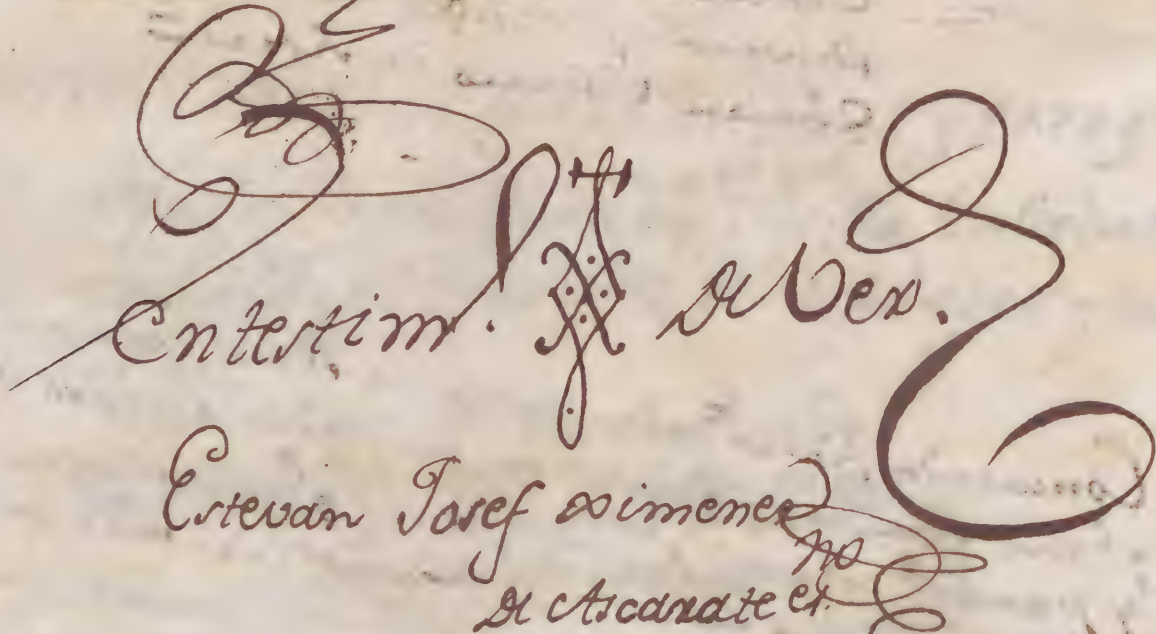 En testim. de Ver.
Estevan Josef Ximenez
de Ascarate es.no